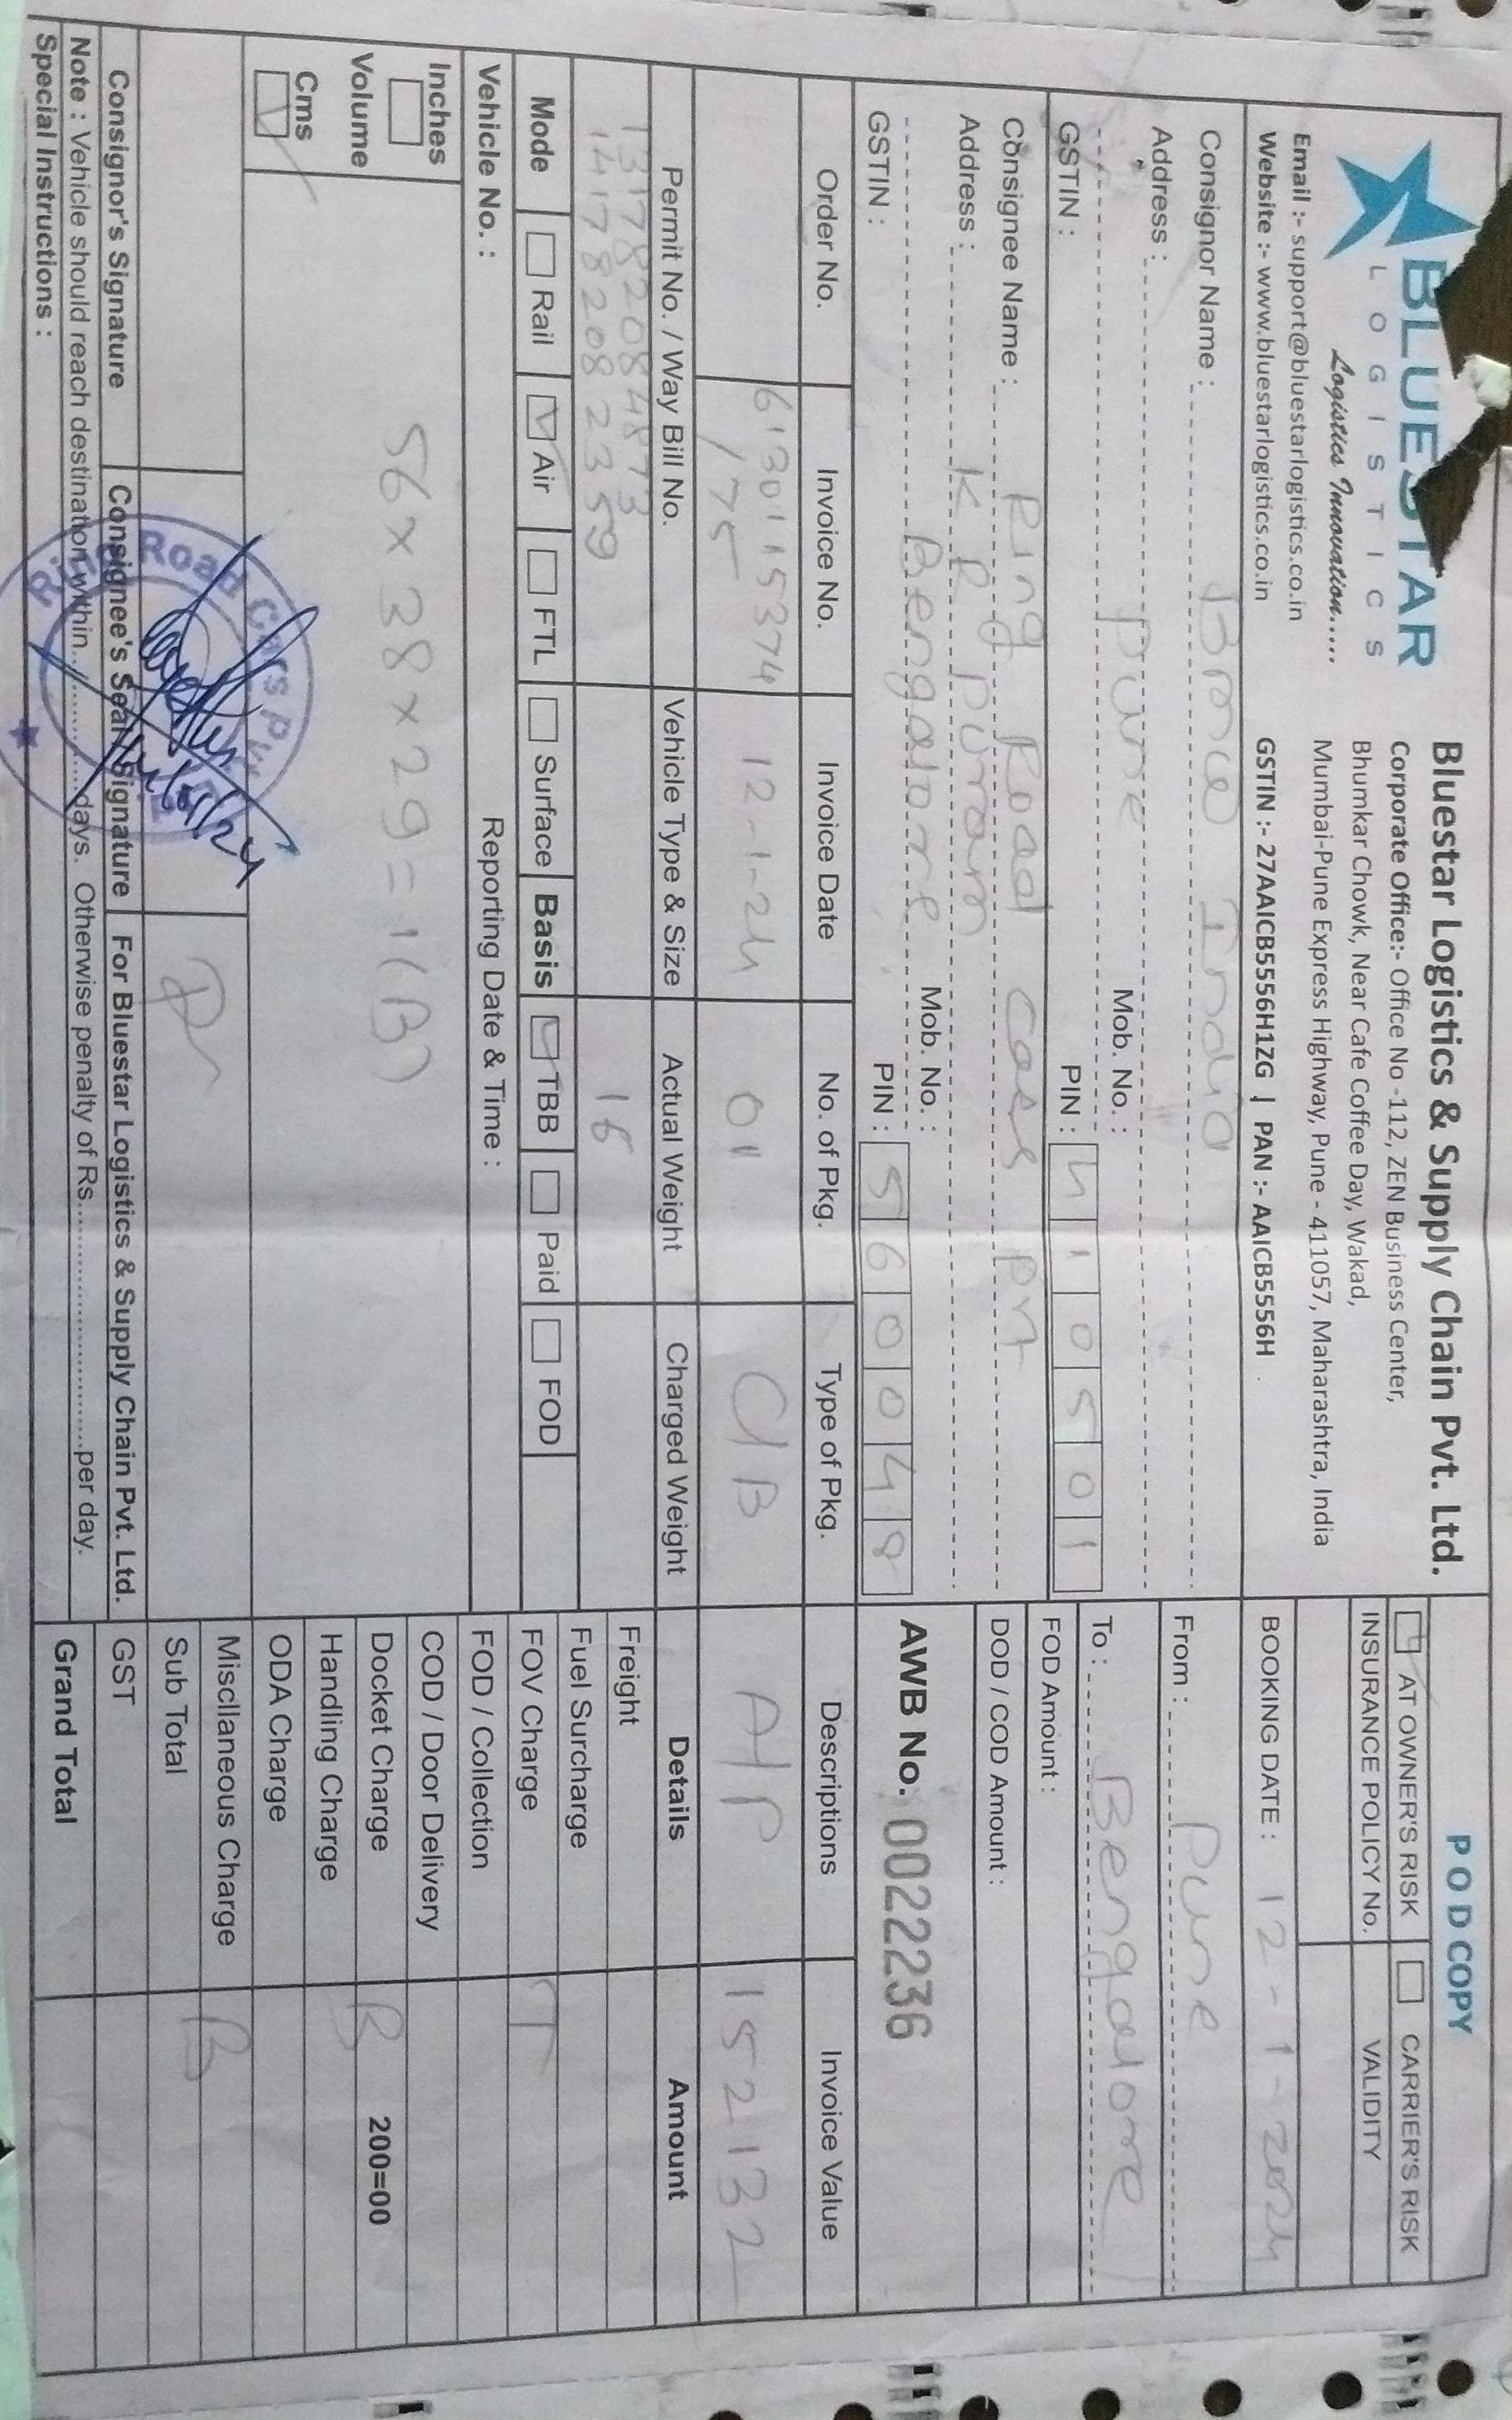 BLUESTAR
LOGISTICS
Logistics Innovation.....
Email :- support@bluestarlogistics.co.in
Website :- www.bluestarlogistics.co.in
Bluestar Logistics & Supply Chain Pvt. Ltd.
Corporate Office:- Office No -112, ZEN Business Center,
Bhumkar Chowk, Near Cafe Coffee Day, Wakad,
Mumbai-Pune Express Highway, Pune - 411057, Maharashtra, India
GSTIN :- 27AAICB5556H1ZG | PAN :- AAICB5556H
POD COPY
AT OWNER'S RISK CARRIER'S RISK
INSURANCE POLICY No. VALIDITY
BOOKING DATE : 12-1-2024
Consignor Name : BMW India
Address :
Pune Mob. No. :
GSTIN : PIN : 410501
From : Pune
To : Bengalore
FOD Amount :
DOD / COD Amount :
Consignee Name : Ring Road Cars Pvt
Address : K R Puram
Bengalore Mob. No. :
GSTIN : PIN : 560048
AWB No. 0022236
Order No. Invoice No. Invoice Date No. of Pkg. Type of Pkg. Descriptions Invoice Value
6130115374 12-1-24 01 C/B A/P 152132
/75
Permit No. / Way Bill No. Vehicle Type & Size Actual Weight Charged Weight Details Amount
131782084873 16
141782082359
Mode Rail Air FTL Surface Basis TBB Paid FOD
Vehicle No. : Reporting Date & Time :
Inches
Volume
Cms
56x38x29=1(B)
Freight
Fuel Surcharge
FOV Charge T
FOD / Collection
COD / Door Delivery
Docket Charge B 200=00
Handling Charge
ODA Charge
Miscllaneous Charge B
Sub Total
GST
Grand Total
Ring Road Cars Pvt
Consignor's Signature Consignee's Seal / Signature For Bluestar Logistics & Supply Chain Pvt. Ltd.
Note : Vehicle should reach destination within..............days. Otherwise penalty of Rs............................per day.
Special Instructions :